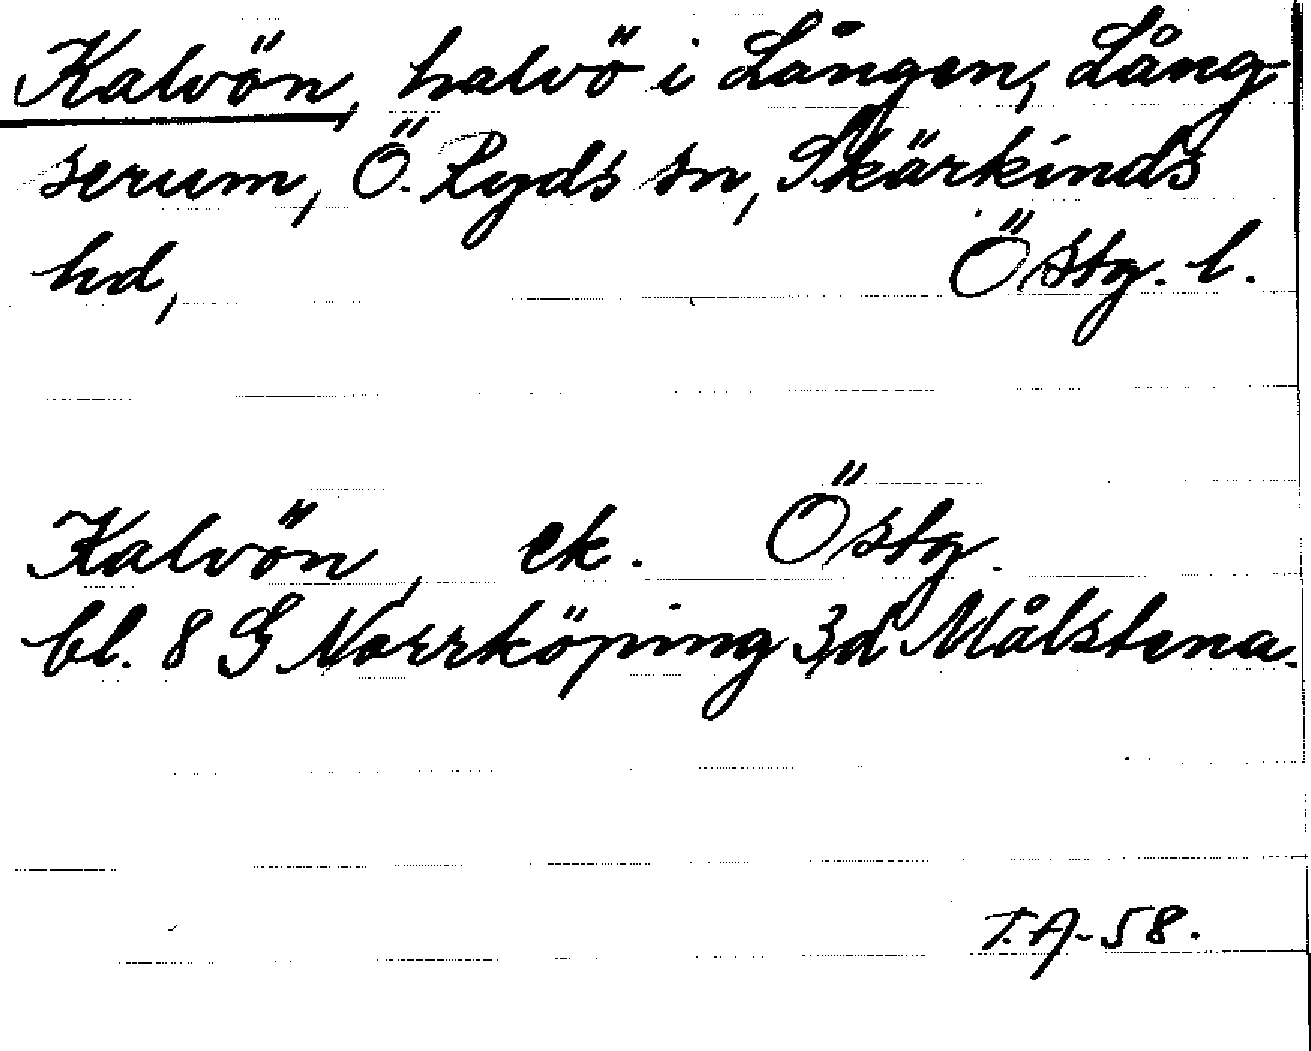 Kalvön, halvö i Lången, Lång
serum, Ö. Ryds sn, Skärkinds
hd, Östg. l.
Kalvön, ek. Östg.
bl. 8 G Norrköping 3d Målstena.
T.A-58.